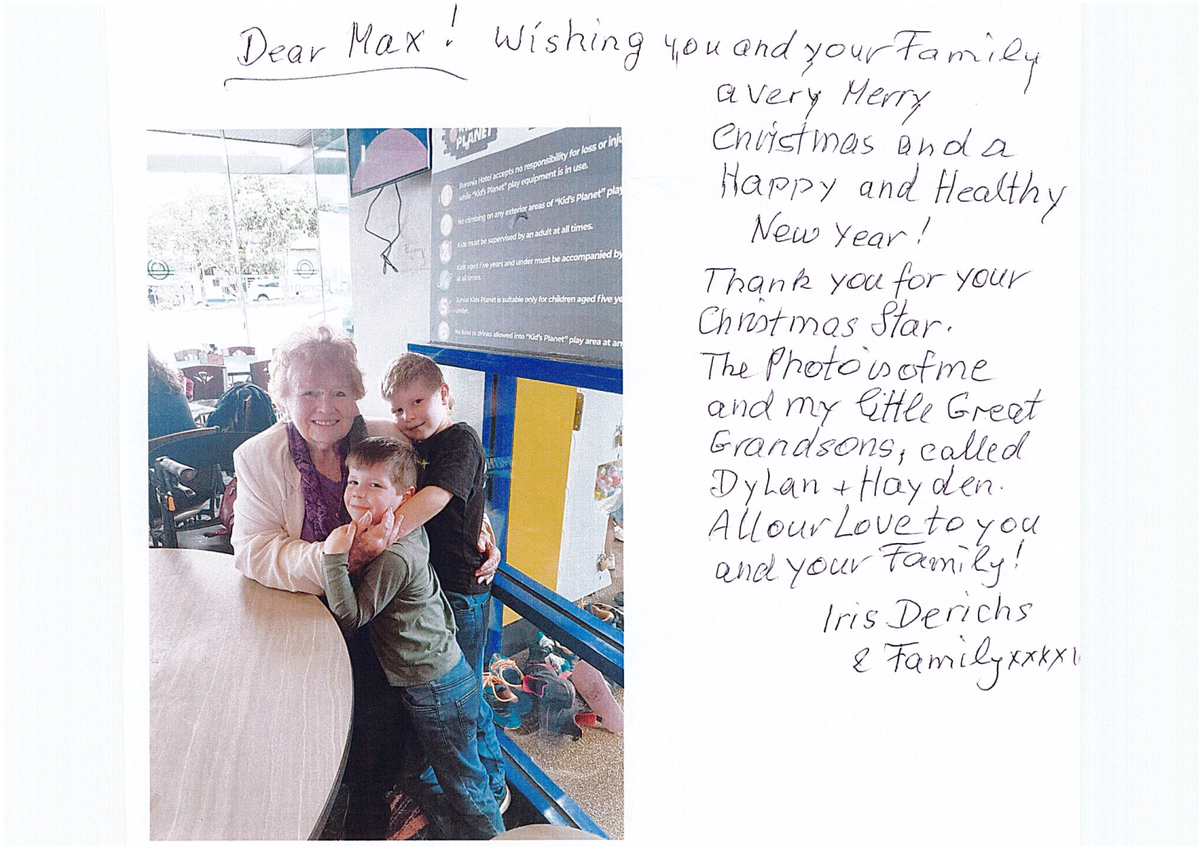 Dear Max! Wishing you and your Family
a very Merry
Christmas and a
Happy and Healthy
New Year!
Thank you for your
Christmas Star.
The Photo is of me
and my little Great
Grandsons, called
Dylan + Hayden.
All our Love to you
and your Family!
Iris Derichs
& Family xxxx
PLANET
Boronia Hotel accepts no responsibility for loss or inju
while "Kid's Planet" play equipment is in use.
No climbing on any exterior areas of "Kid's Planet" play
Kids must be supervised by an adult at all times.
Kids aged five years and under must be accompanied by
at all times.
Junior Kids Planet is suitable only for children aged five ye
under.
No food or drinks allowed into "Kid's Planet" play area at an